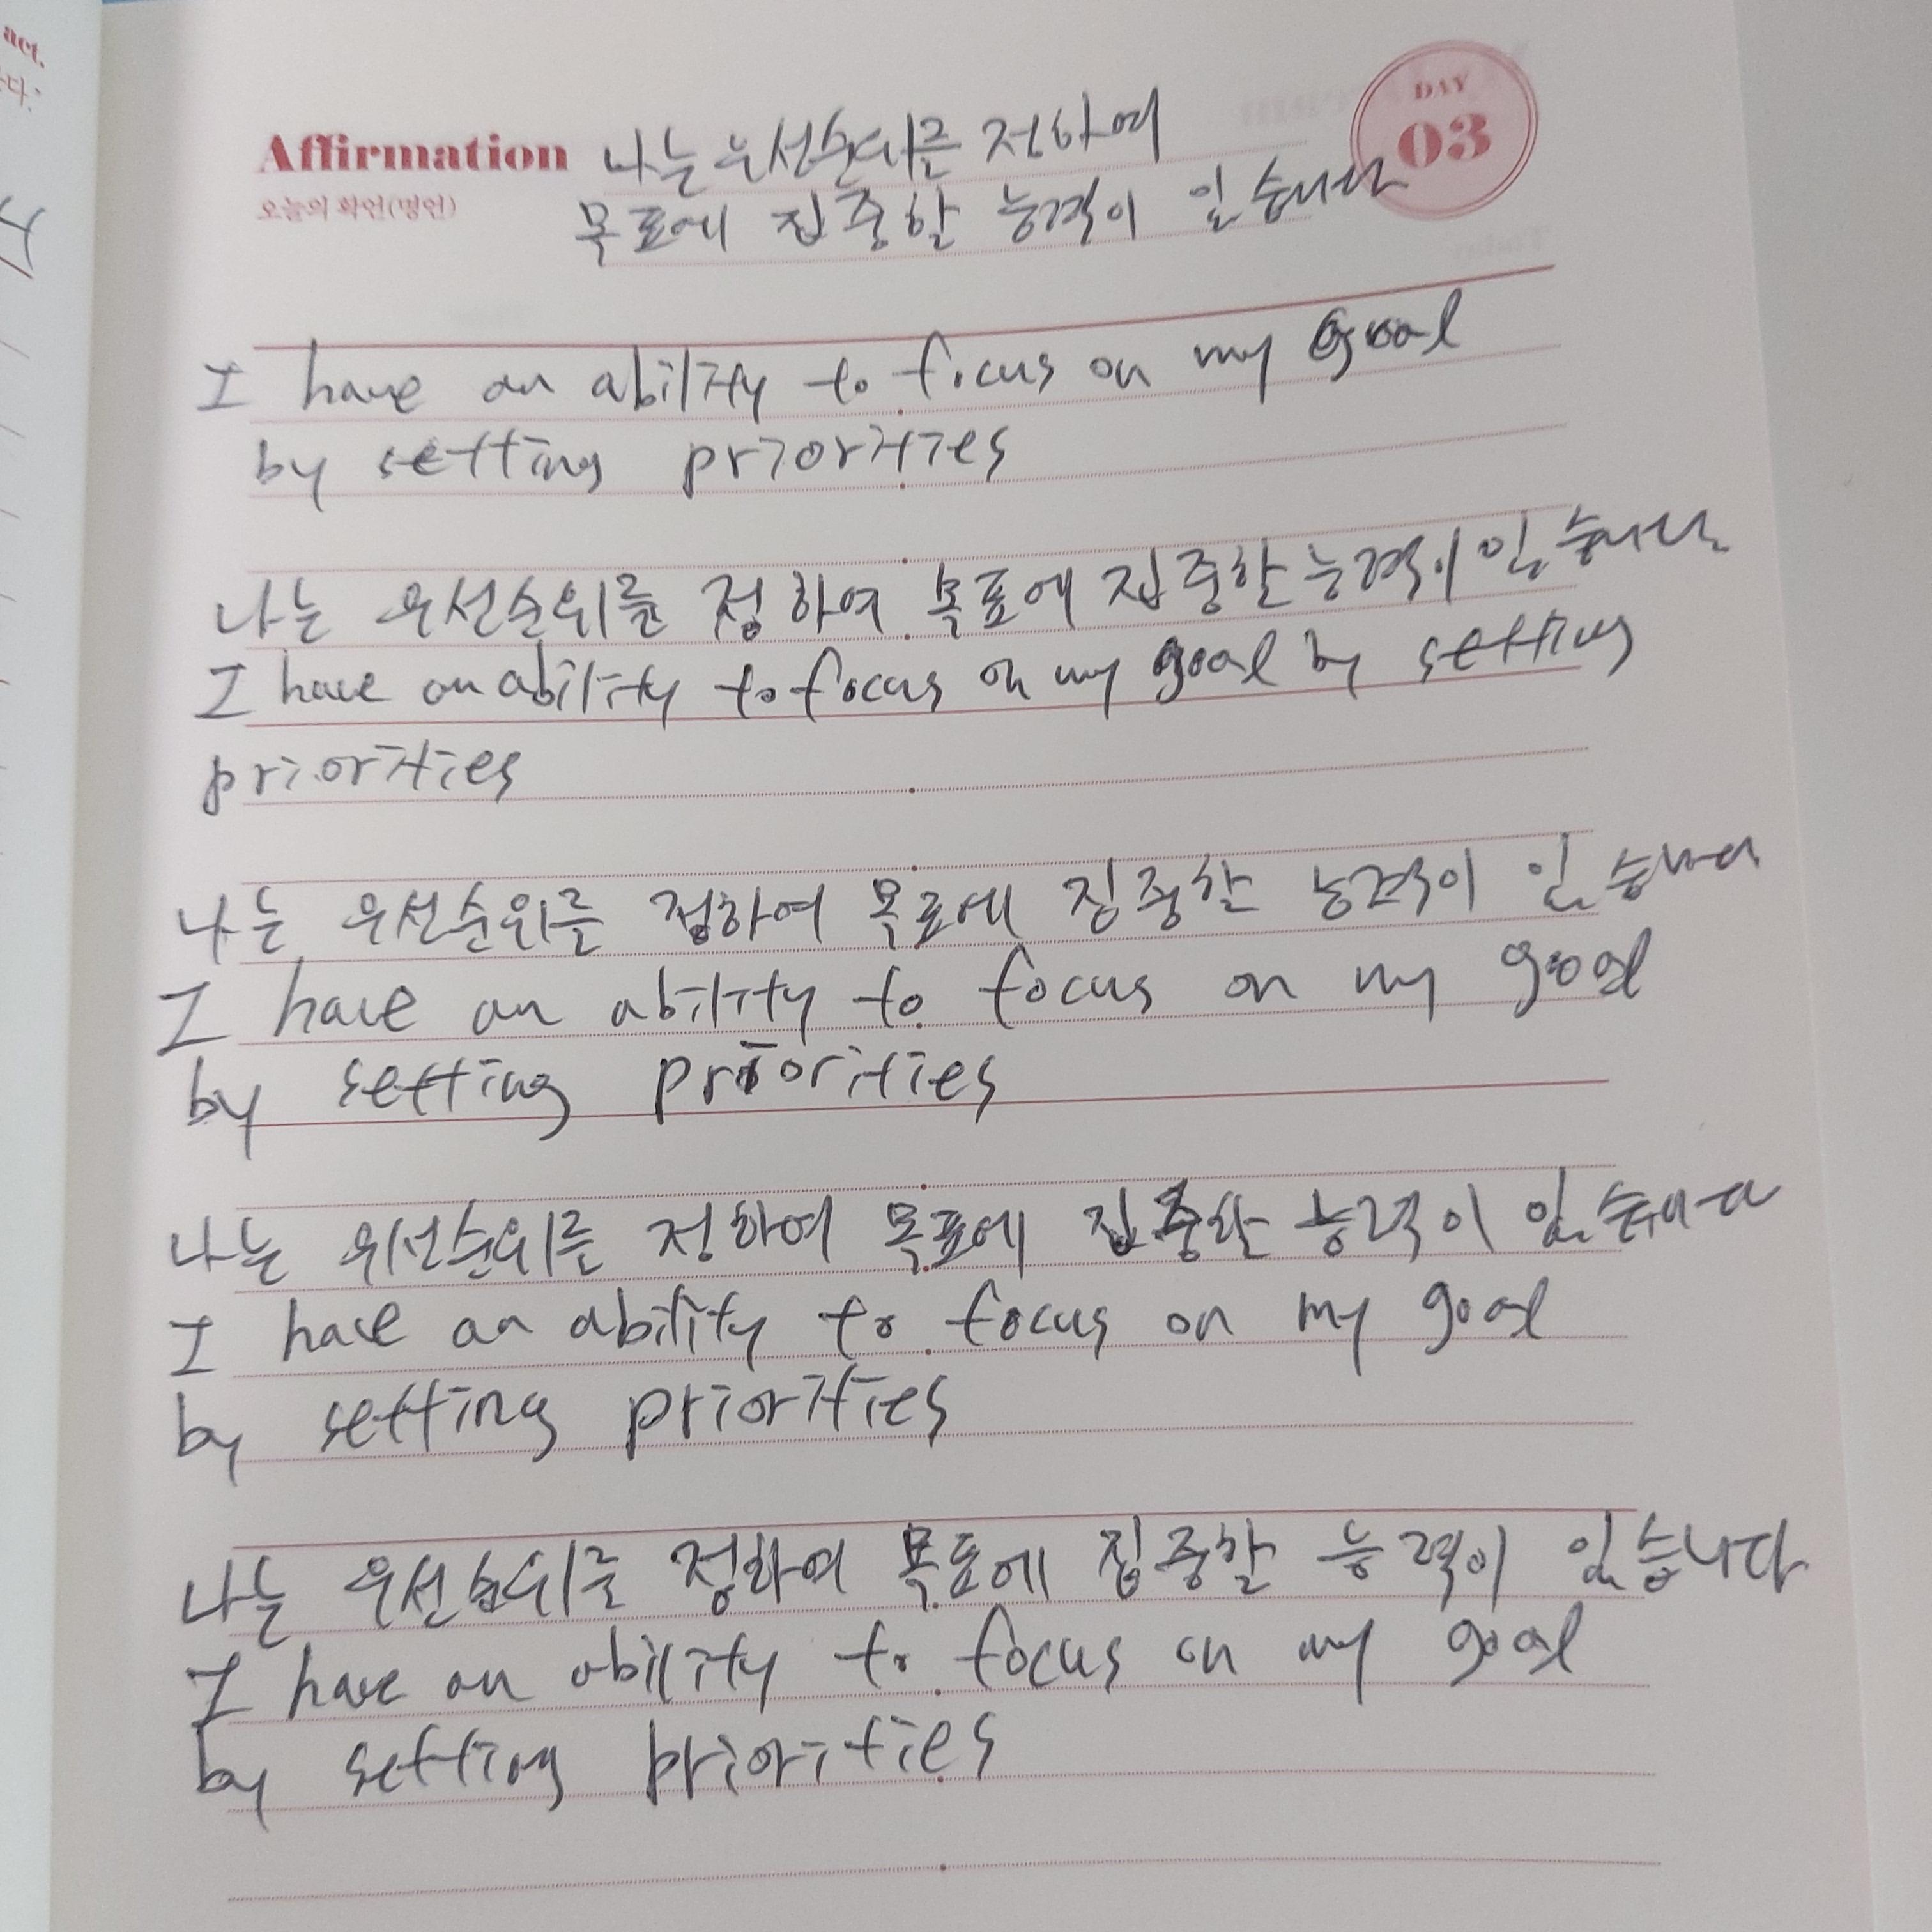 act.
다.'
DAY
03
Affirmation 나는 우선순위를 정하여
오늘의 확언(명언)
목표에 집중할 능력이 있습니다
I have an ability to focus on my goal
by setting priorities
나는 우선순위를 정하여 목표에 집중할 능력이 있습니다
I have an ability to focus on my goal by setting
priorities
나는 우선순위를 정하여 목표에 집중할 능력이 있습니다
I have an ability to focus on my goal
by setting priorities
나는 우선순위를 정하여 목표에 집중할 능력이 있습니다
I have an ability to focus on my goal
by setting priorities
나는 우선순위를 정하여 목표에 집중할 능력이 있습니다
I have an ability to focus on my goal
by setting priorities